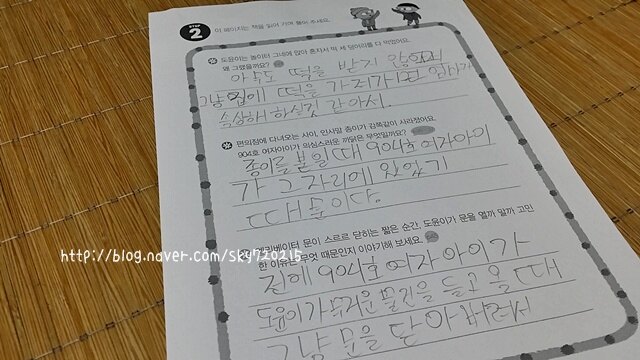 STEP 2 이 페이지는 책을 읽어 가며 풀어 주세요.
도윤이는 놀이터 그네에 앉아 혼자서 떡 세 덩어리를 다 먹었어요.
왜 그랬을까요?
아무도 떡을 받지 않았고
그냥 집에 떡을 가져가면 엄마가
속상해 하실것 같아서.
편의점에 다녀오는 사이, 인사말 종이가 감쪽같이 사라졌어요.
904호 여자아이가 의심스러운 까닭은 무엇일까요?
종이를 붙일 때 904호 여자아이
가 그 자리에 있었기
때문이다.
http://blog.naver.com/sky720215
엘리베이터 문이 스르르 닫히는 짧은 순간, 도윤이가 문을 열까 말까 고민
한 이유는 무엇 때문인지 이야기해 보세요.
전에 904호 여자 아이가
도윤이가 무거운 물건을 들고 올 때
그냥 문을 닫아 버려서